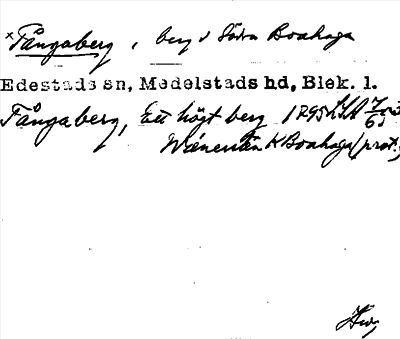 ×Fångaberg, berg v Södra Boahaga
Edestads sn, Medelstads hd, Blek. l.
Fångaberg, Ett högt berg 1795 LSA
K Boahaga (prot.)